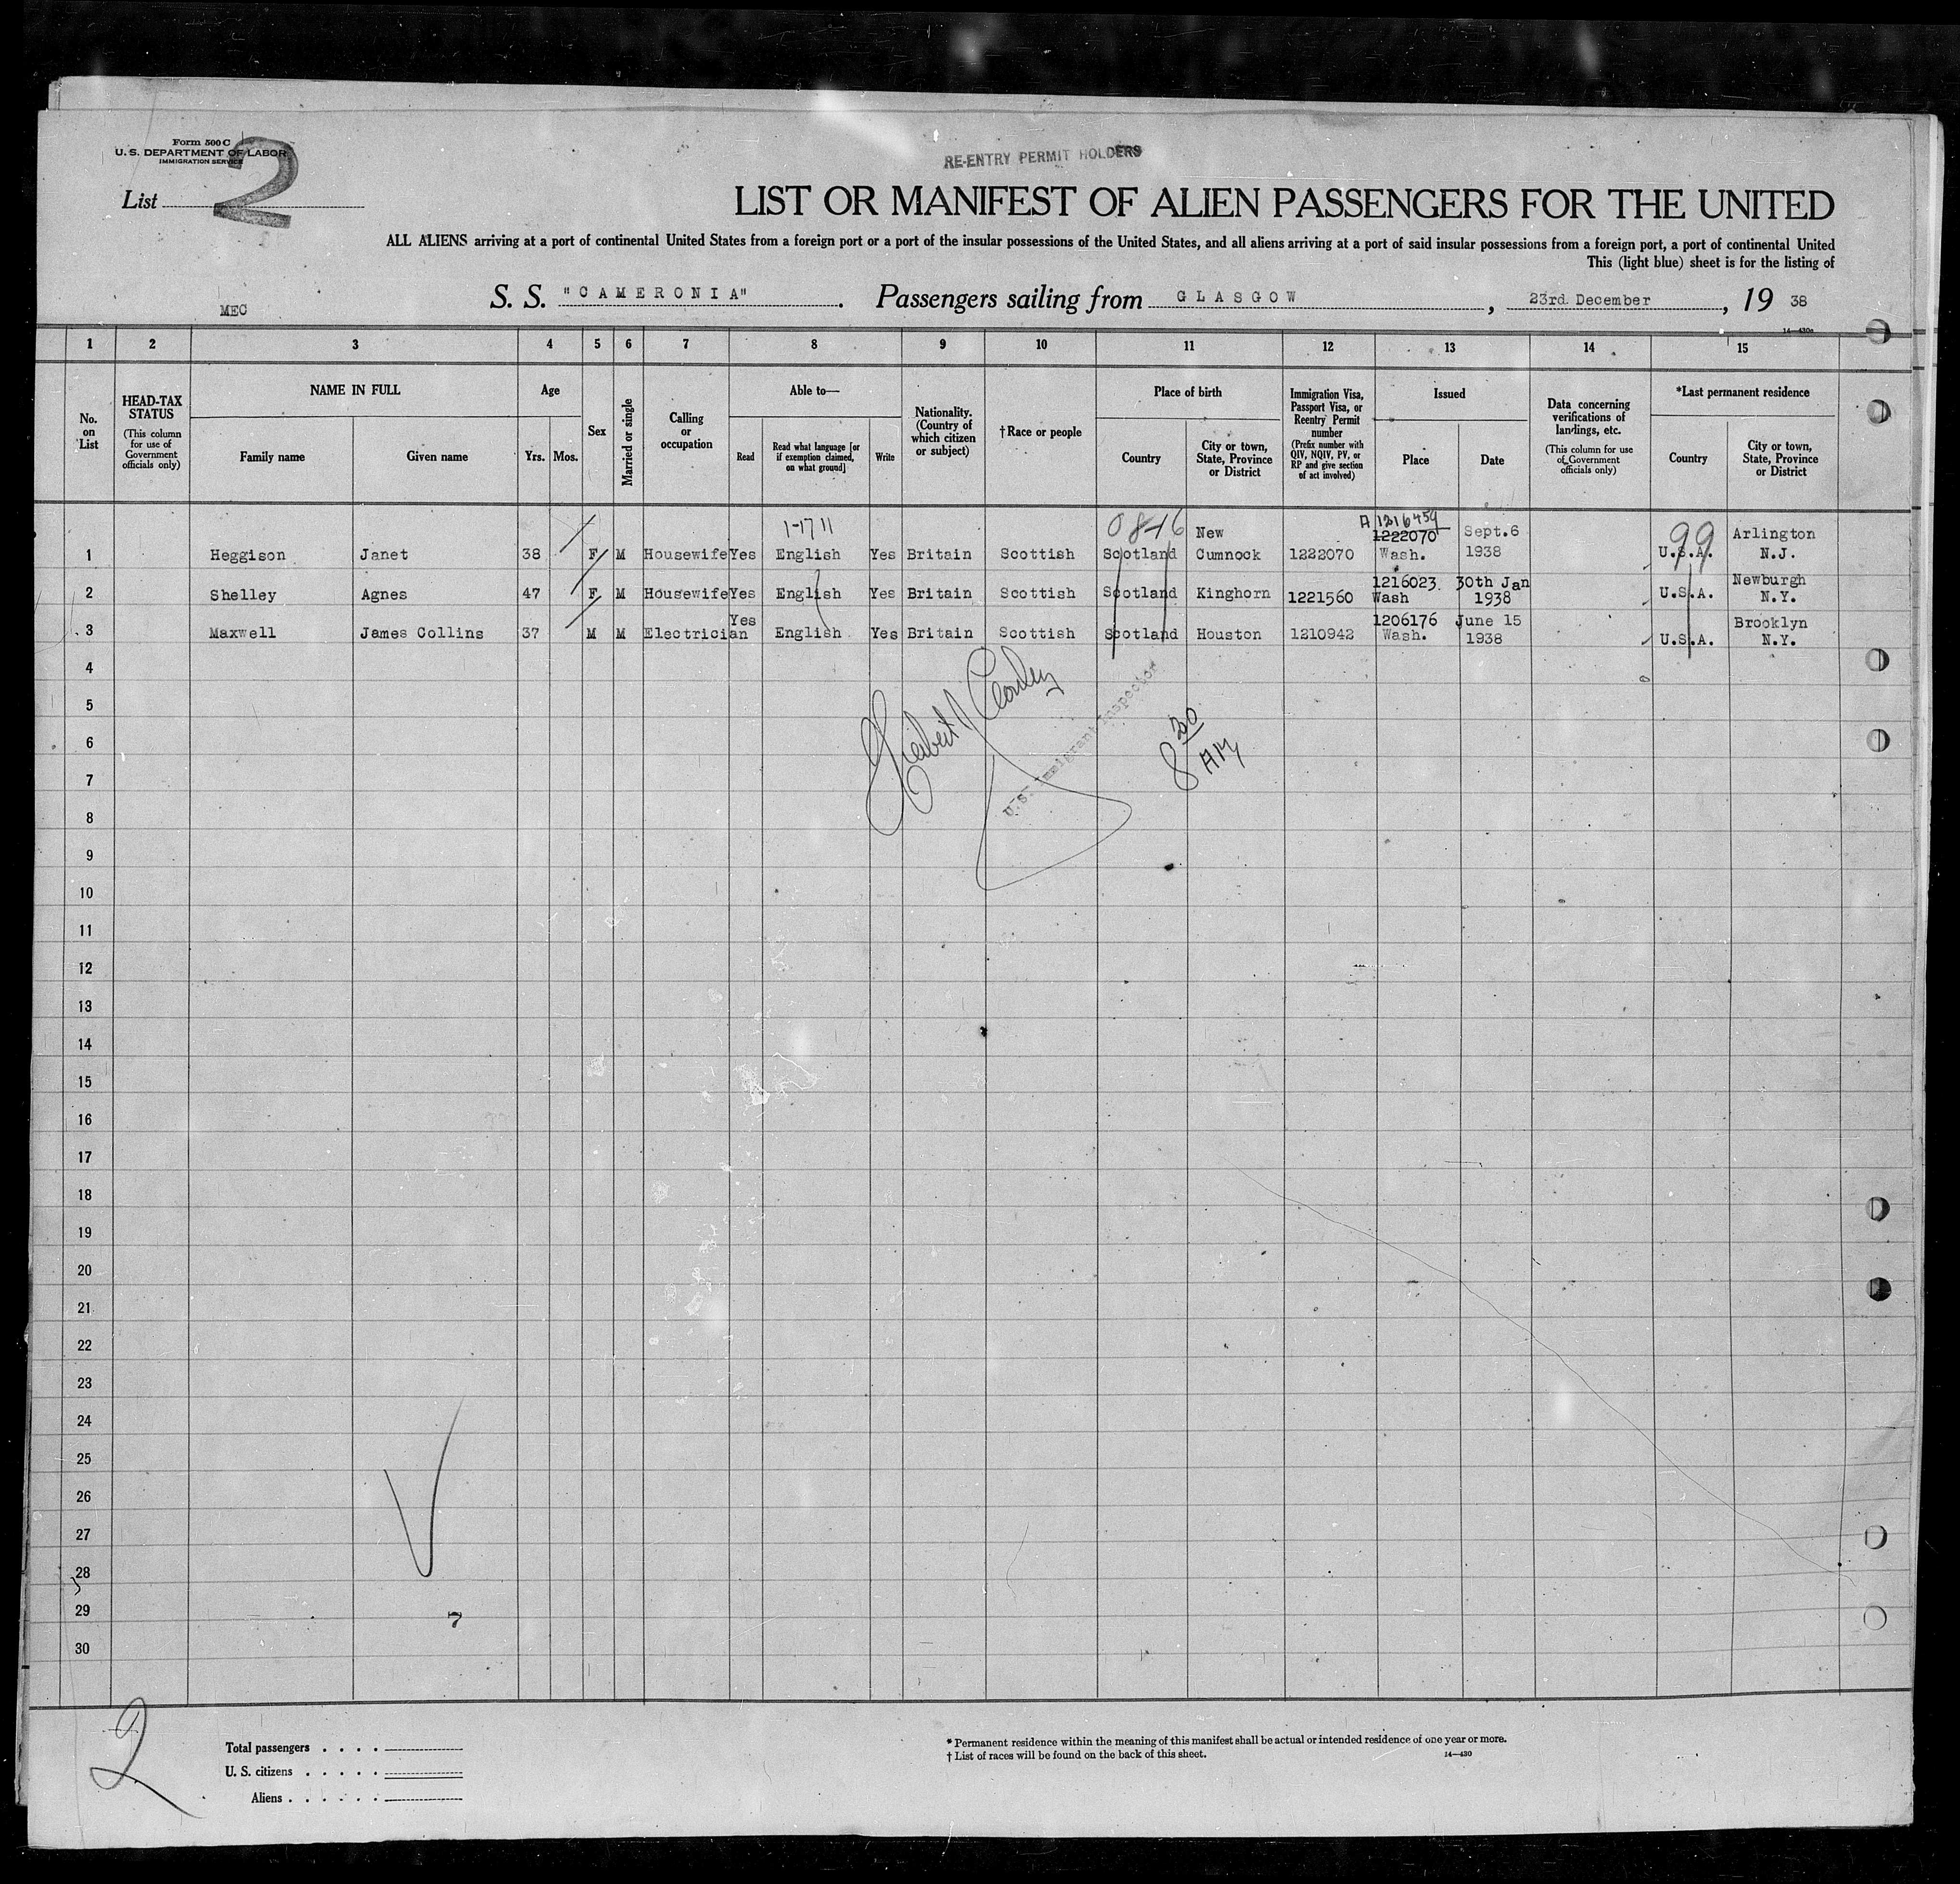 Form 500 C
U. S. DEPARTMENT OF LABOR
IMMIGRATION SERVICE
2
RE-ENTRY PERMIT HOLDERS
List
LIST OR MANIFEST OF ALIEN PASSENGERS FOR THE UNITED
ALL ALIENS arriving at a port of continental United States from a foreign port or a port of the insular possessions of the United States, and all aliens arriving at a port of said insular possessions from a foreign port, a port of continental United
This (light blue) sheet is for the listing of
MEC
S. S. "CAMERONIA". Passengers sailing from GLASGOW, 23rd December, 19 38
14—430a
1 2 3 4 5 6 7 8 9 10 11 12 13 14 15
No. on List
HEAD-TAX STATUS (This column for use of Government officials only)
NAME IN FULL
Family name
Given name
Age
Yrs.
Mos.
Sex
Married or single
Calling or occupation
Able to—
Read
Read what language [or if exemption claimed, on what ground]
Write
Nationality. (Country of which citizen or subject)
†Race or people
Place of birth
Country
City or town, State, Province or District
Immigration Visa, Passport Visa, or Reentry Permit number (Prefix number with QIV, NQIV, PV, or RP and give section of act involved)
Issued
Place
Date
Data concerning verifications of landings, etc. (This column for use of Government officials only)
*Last permanent residence
Country
City or town, State, Province or District
1-1711 08-16 New A 1216459 1222070 Sept.6 99 Arlington
1 Heggison Janet 38 F M Housewife Yes English Yes Britain Scottish Scotland Cumnock 1222070 Wash. 1938 U.S.A. N.J.
1216023 30th Jan Newburgh
2 Shelley Agnes 47 F M Housewife Yes English Yes Britain Scottish Scotland Kinghorn 1221560 Wash 1938 U.S.A. N.Y.
Yes 1206176 June 15 Brooklyn
3 Maxwell James Collins 37 M M Electrician English Yes Britain Scottish Scotland Houston 1210942 Wash. 1938 U.S.A. N.Y.
4
5
U.S. Immigrant Inspector
8 30 AM
6
7
8
9
10
11
12
13
14
15
16
17
18
19
20
21
22
23
24
25
26
27
28
29
7
30
2
Total passengers . . . .
U. S. citizens . . . . .
Aliens . . . . . .
* Permanent residence within the meaning of this manifest shall be actual or intended residence of one year or more.
† List of races will be found on the back of this sheet.
14—430